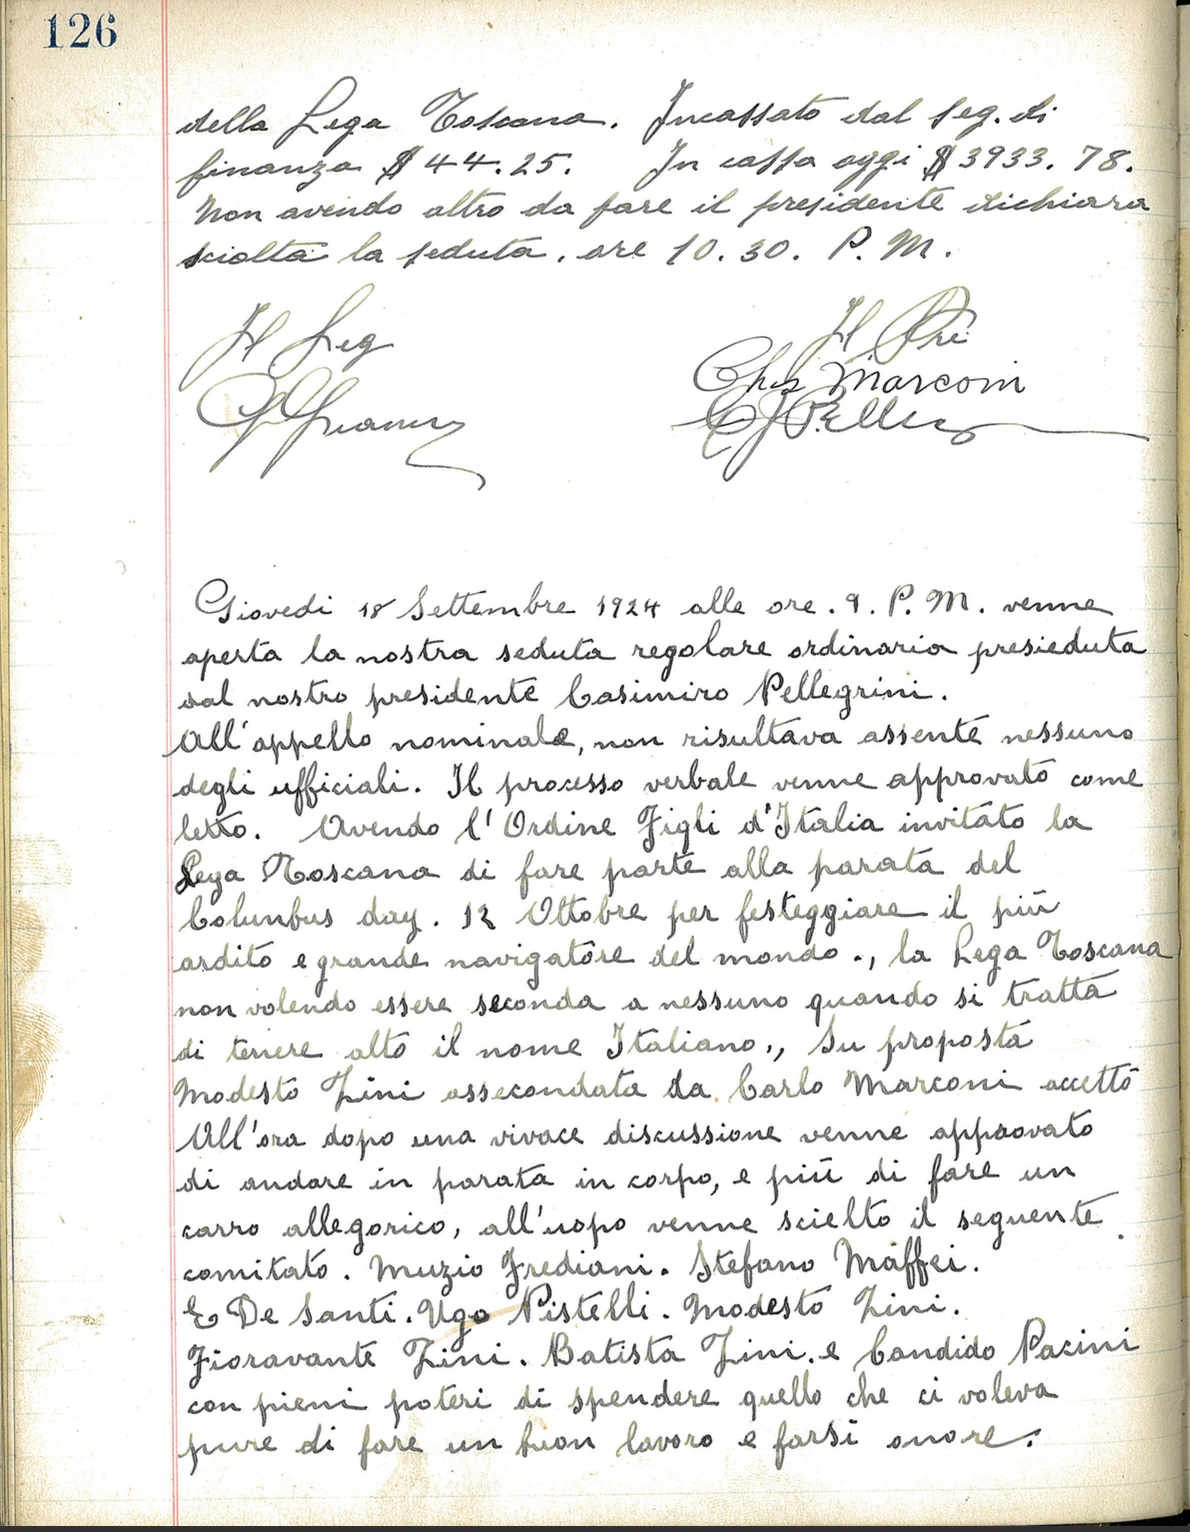 126
della Lega Toscana. Incassato dal seg. di
finanza $ 44.25. In cassa oggi $ 3933.78.
Non avendo altro da fare il presidente dichiara
sciolta la seduta, ore 10.30. P.M.
Il Seg Il Pre
Chs Marconi
Giovedi 18 Settembre 1924 alle ore. 9. P.M. venne
aperta la nostra seduta regolare ordinaria presieduta
dal nostro presidente Casimiro Pellegrini.
All'appello nominale, non risultava assente nessuno
degli ufficiali. Il processo verbale venne approvato come
letto. Avendo l'Ordine Figli d'Italia invitato la
Lega Toscana di fare parte alla parata del
Columbus day. 12 Ottobre per festeggiare il più
ardito e grande navigatore del mondo., la Lega Toscana
non volendo essere seconda a nessuno quando si tratta
di tenere alto il nome Italiano., Su proposta
Modesto Zini assecondata da Carlo Marconi accettò
All'ora dopo una vivace discussione venne approvato
di andare in parata in corpo, e più di fare un
carro allegorico, all'uopo venne scielto il seguente
comitato. Muzio Frediani. Stefano Maffei.
E De Santi. Ugo Pistelli. Modesto Zini.
Fioravante Zini. Batista Zini. e Candido Pacini
con pieni poteri di spendere quello che ci voleva
pure di fare un buon lavoro e farsi onore.